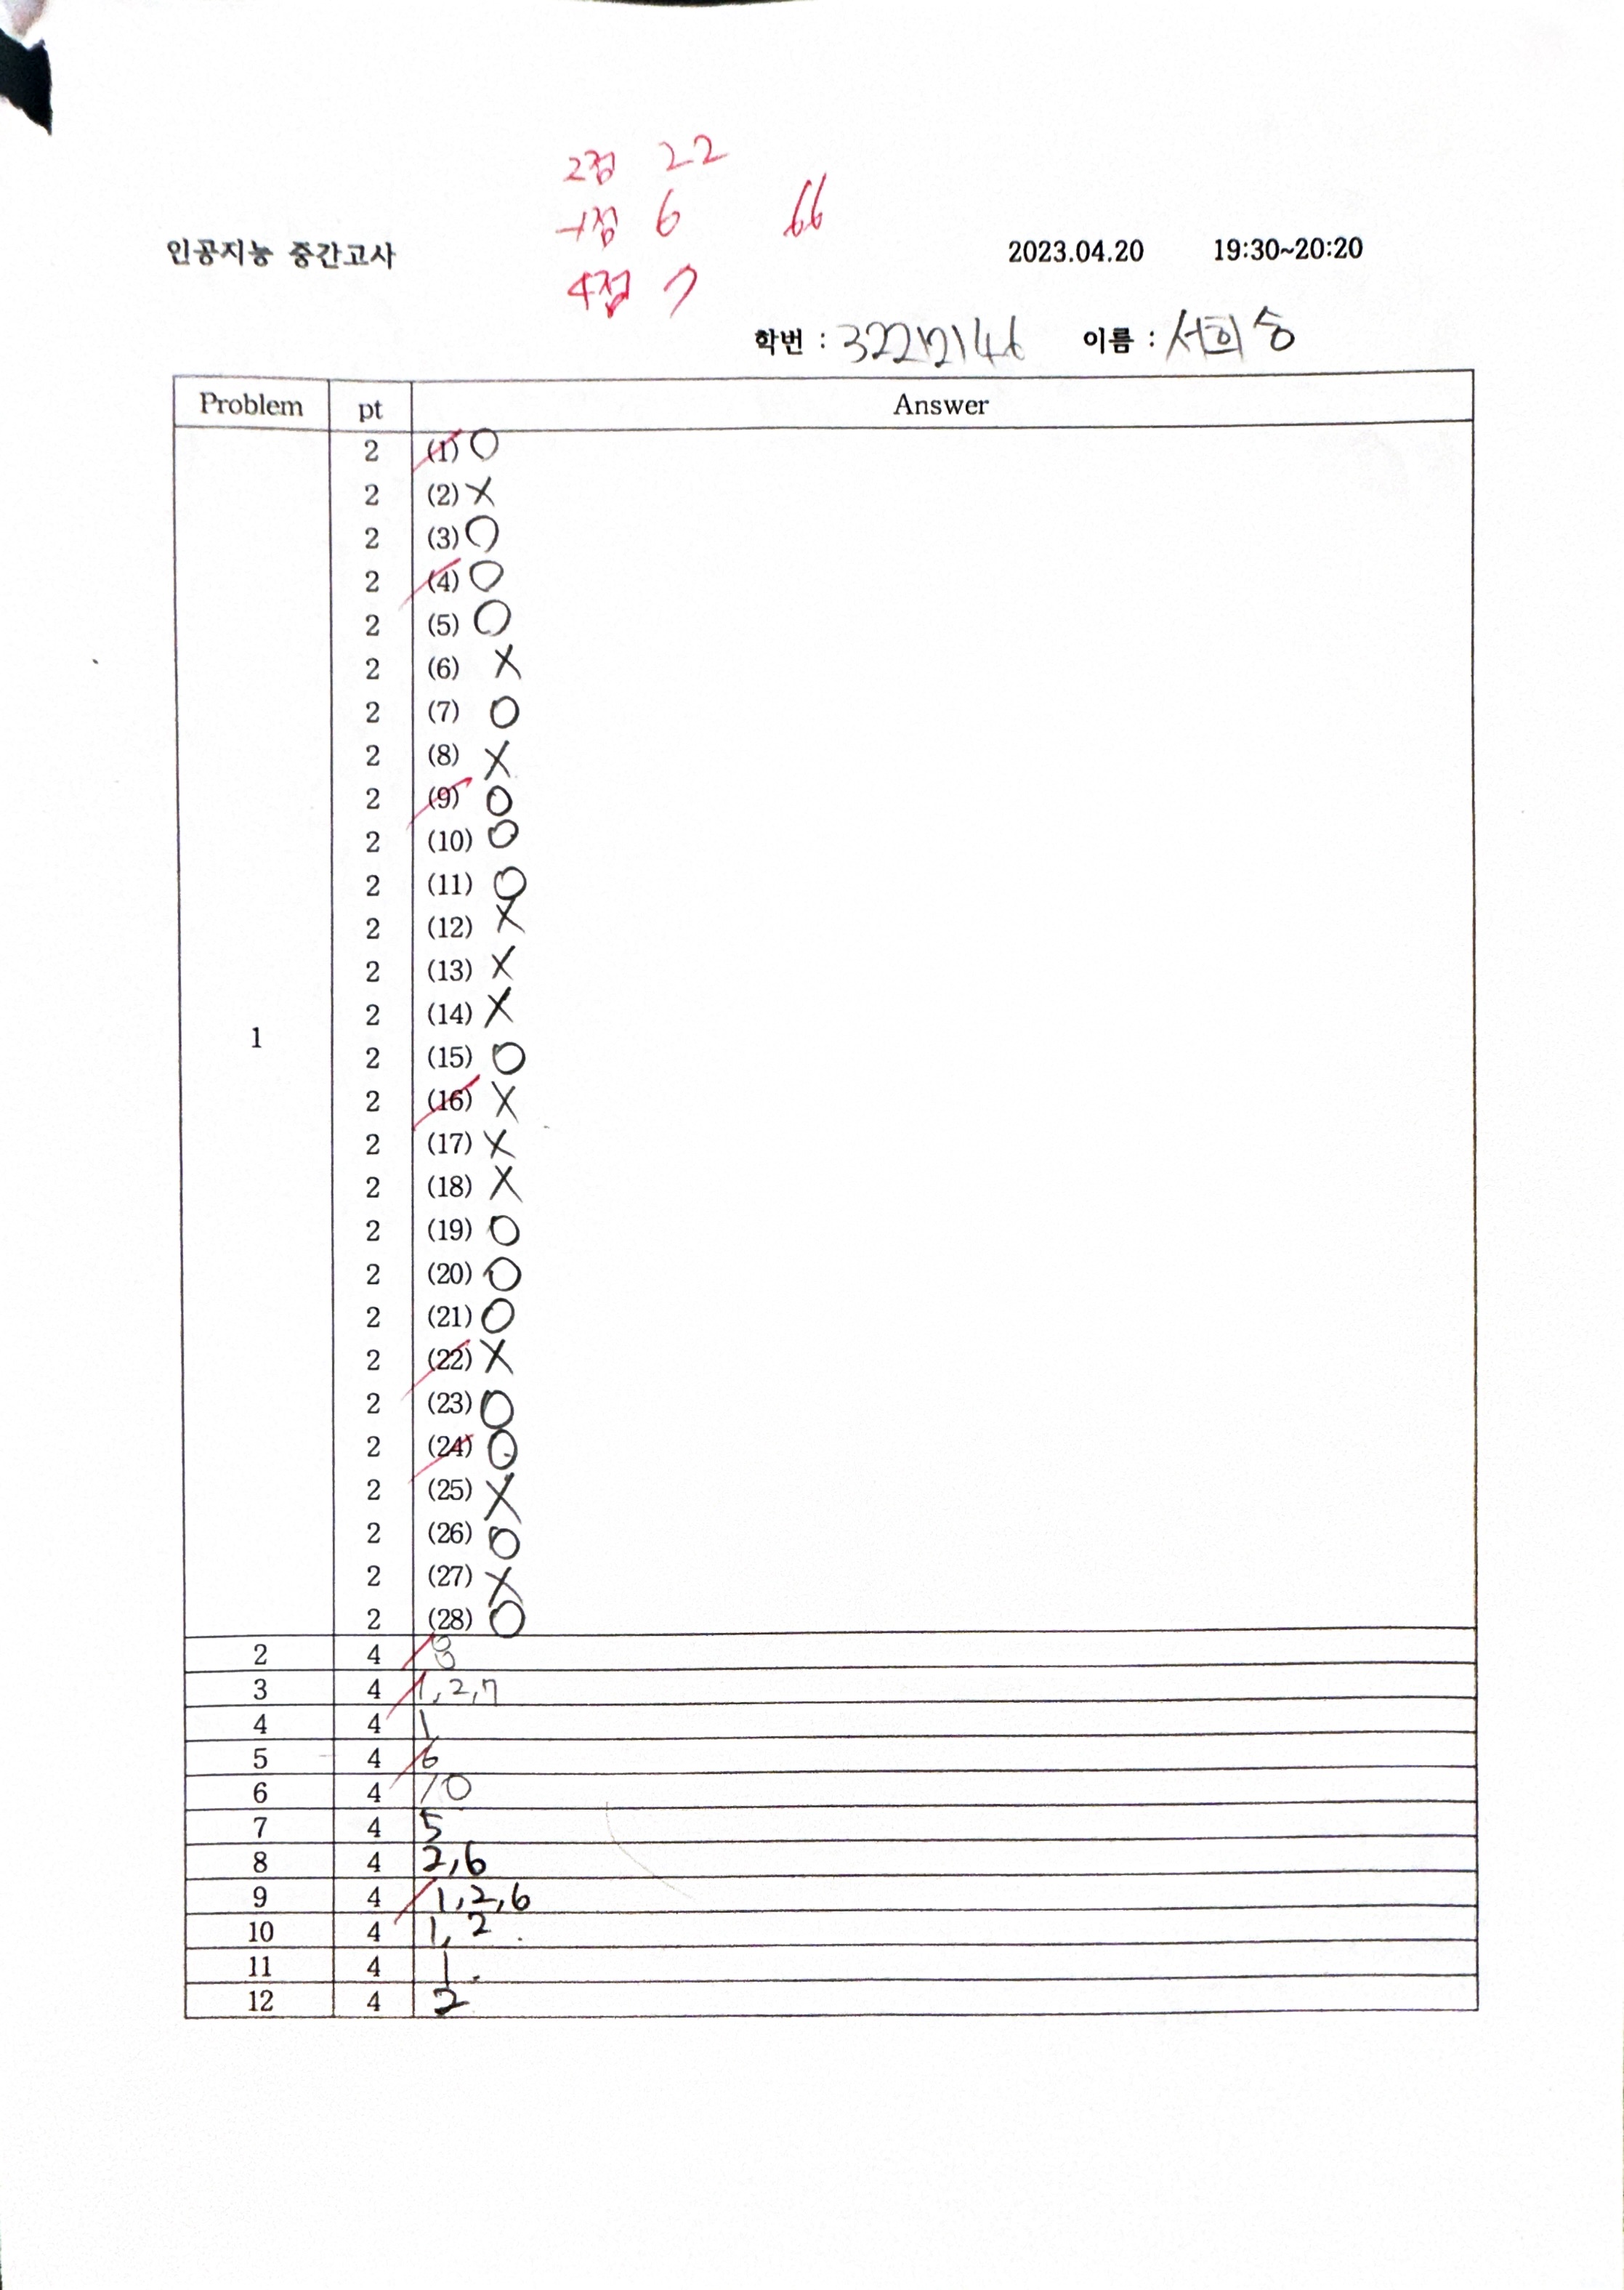 2점 22
-1점 6 66
인공지능 중간고사 2023.04.20 19:30~20:20
4점 7
학번 : 32212146 이름 : 서희승
Problem pt Answer
1
2 (1) O
2 (2) X
2 (3) O
2 (4) O
2 (5) O
2 (6) X
2 (7) O
2 (8) X
2 (9) O
2 (10) O
2 (11) O
2 (12) X
2 (13) X
2 (14) X
2 (15) O
2 (16) X
2 (17) X
2 (18) X
2 (19) O
2 (20) O
2 (21) O
2 (22) X
2 (23) O
2 (24) O
2 (25) X
2 (26) O
2 (27) X
2 (28) O
2 4 8
3 4 1, 2, 7
4 4 1
5 4 6
6 4 70
7 4 5
8 4 2, 6
9 4 1, 2, 6
10 4 1, 2
11 4 1
12 4 2